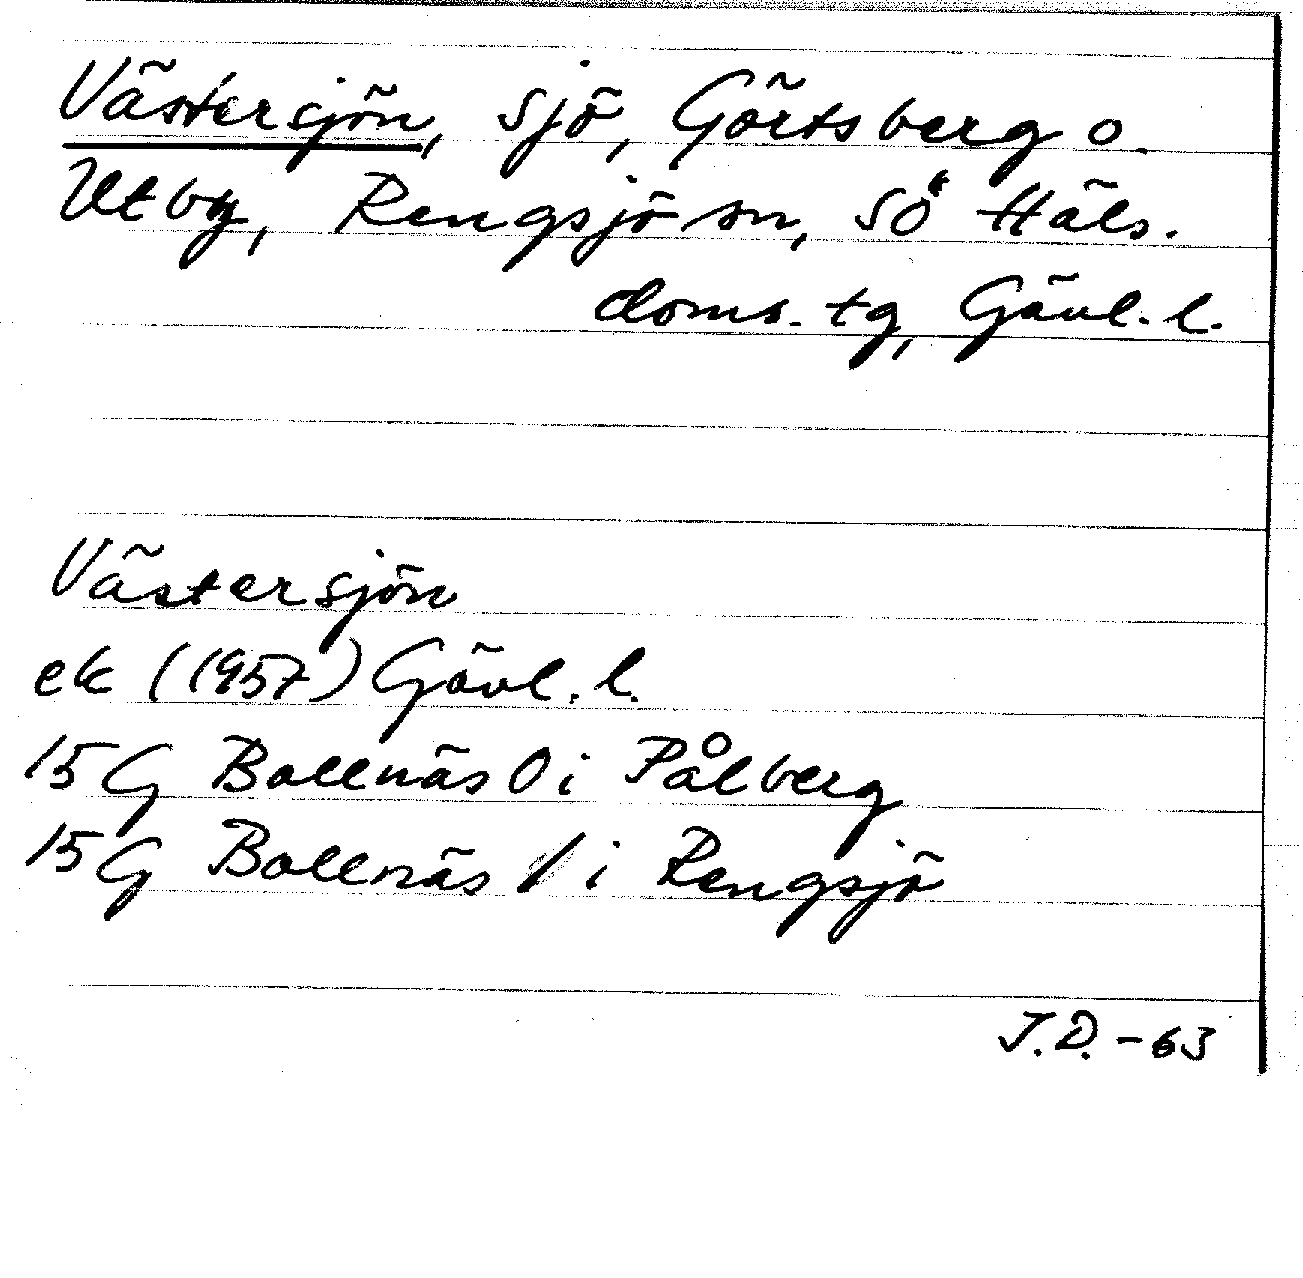 Västersjön, sjö, Görtsberg o.
Utby, Rengsjö sn, Sö Häls.
doms. tg, Gävl. l.
Västersjön
ek (1957) Gävl. l.
15 G Bollnäs 0 i Pålberg
15 G Bollnäs 1 i Rengsjö
J.D. - 63